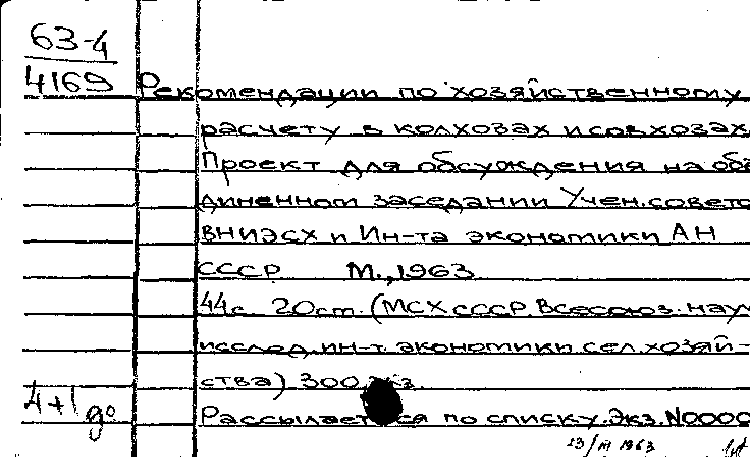 63-4
4169
Рекомендации по хозяйственному
расчету в колхозах и совхозах
Проект для обсуждения на объ
диненном заседании Учен. совето
ВНИЭСХ и Ин-та экономики АН
СССР М., 1963
44с. 20см. (МСХ СССР. Всесоюз. науч
исслед. ин-т. экономики сел. хозяй-
ства) 300 экз.
4+1 до
Рассылается по списку. Экз. N0000
13/III 1963